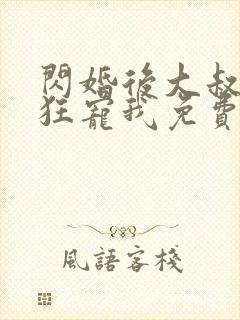 閃婚後大叔
狂寵我免費
風語客棧